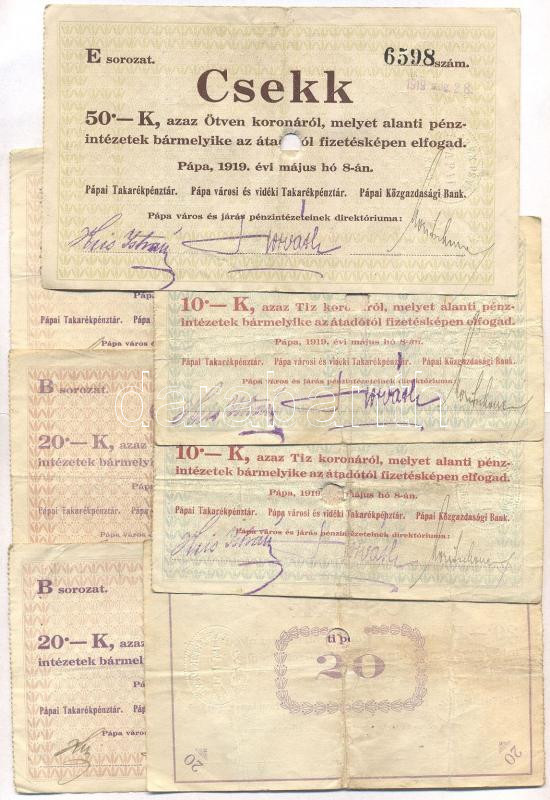 E sorozat.
6598 szám.
Csekk
50·— K, azaz Ötven koronáról, melyet alanti pénz-
intézetek bármelyike az átadótól fizetésképen elfogad.
Pápa, 1919. évi május hó 8-án.
Pápai Takarékpénztár. Pápa városi és vidéki Takarékpénztár. Pápai Közgazdasági Bank.
Pápa város és járás pénzintézeteinek direktóriuma:
Kis István Horváth
Pápai Takarékpénztár. Pápa
Pápa város é
10·— K, azaz Tiz koronáról, melyet alanti pénz-
intézetek bármelyike az átadótól fizetésképen elfogad.
Pápa, 1919. évi május hó 8-án.
Pápai Takarékpénztár. Pápa városi és vidéki Takarékpénztár. Pápai Közgazdasági Bank.
Pápa város és járás pénzintézeteinek direktóriuma:
Kis István Horváth
B sorozat.
20·— K, azaz
intézetek bármelyike
Pápai Takarékpénztár. Pápa
Pápa város
10·— K, azaz Tiz koronáról, melyet alanti pénz-
intézetek bármelyike az átadótól fizetésképen elfogad.
Pápa, 1919. május hó 8-án.
Pápai Takarékpénztár. Pápa városi és vidéki Takarékpénztár. Pápai Közgazdasági Bank.
Pápa város és járás pénzintézeteinek direktóriuma:
Kis István Horváth
B sorozat.
20·— K, azaz
intézetek bármelyike
Pápai Takarékpénztár. Pápa
Pápa város
20
20
20
darabanth